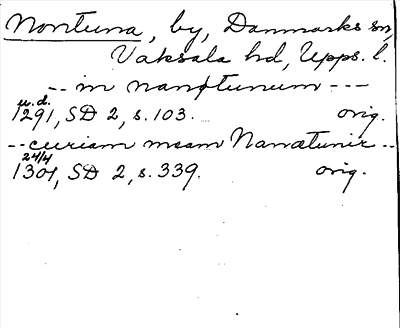 Nontuna, by, Danmarks sn,
Vaksala hd, Upps. l.
-- in nandtunum ---
u.d.
1291, SD 2, s. 103. orig.
-- curiam meam Nanætunir --
24/4
1301, SD 2, s. 339. orig.